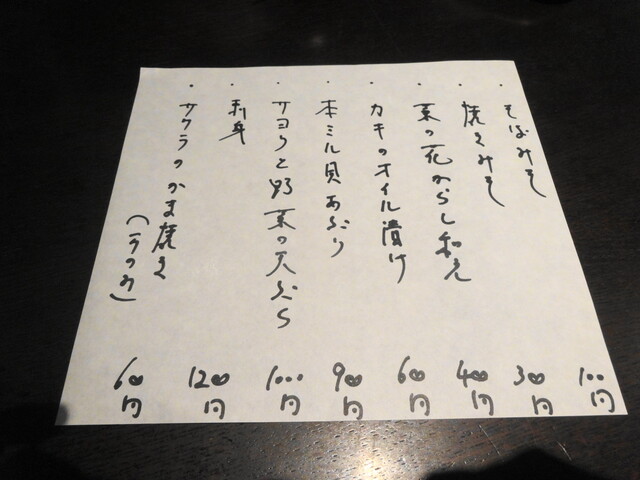 ・そばみそ 100円
・焼きみそ 300円
・菜の花からし和え 400円
・カキのオイル漬け 600円
・本ミル貝あぶり 900円
・サヨリと野菜の天ぷら 1000円
・刺身 1200円
・サワラのかま焼き 600円
(一つのみ)